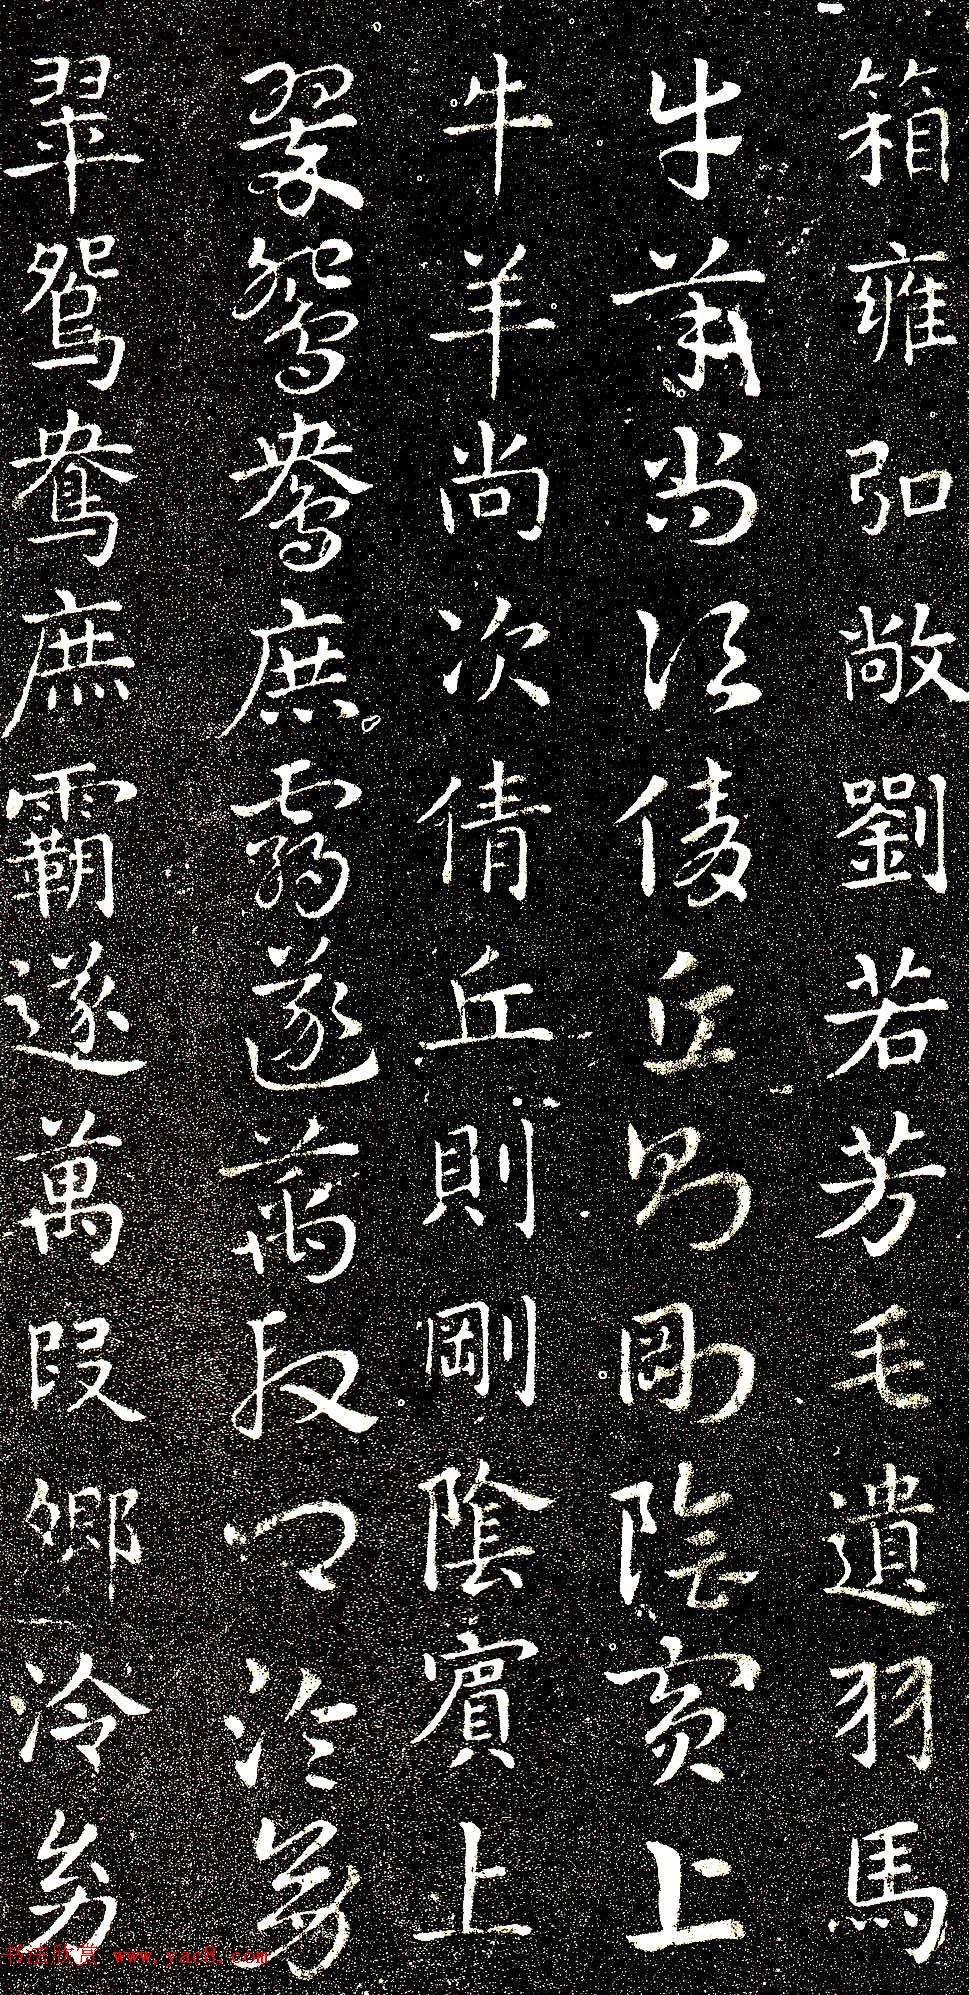 箱雍弘敞劉若芳毛遺羽馬
牛羊尚次倩丘則剛陰賓上
牛羊尚次倩丘則剛陰賓上
翠鴛鴦庶霸遂萬段卿冷幼
翠鴛鴦庶霸遂萬段卿冷幼
书法欣赏 www.yac8.com